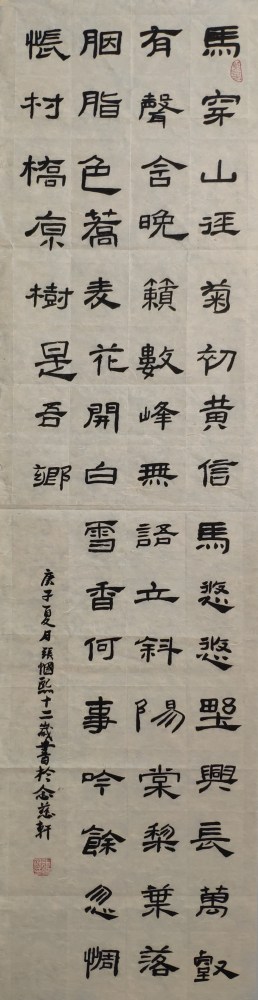 馬穿山徑菊初黃信馬悠悠野興長萬壑
有聲含晚籟數峰無語立斜陽棠梨葉落
胭脂色蕎麦花開白雪香何事吟餘忽惆
悵村橋原樹是吾鄉
庚子夏月張恩熙十二歲書於念慈軒